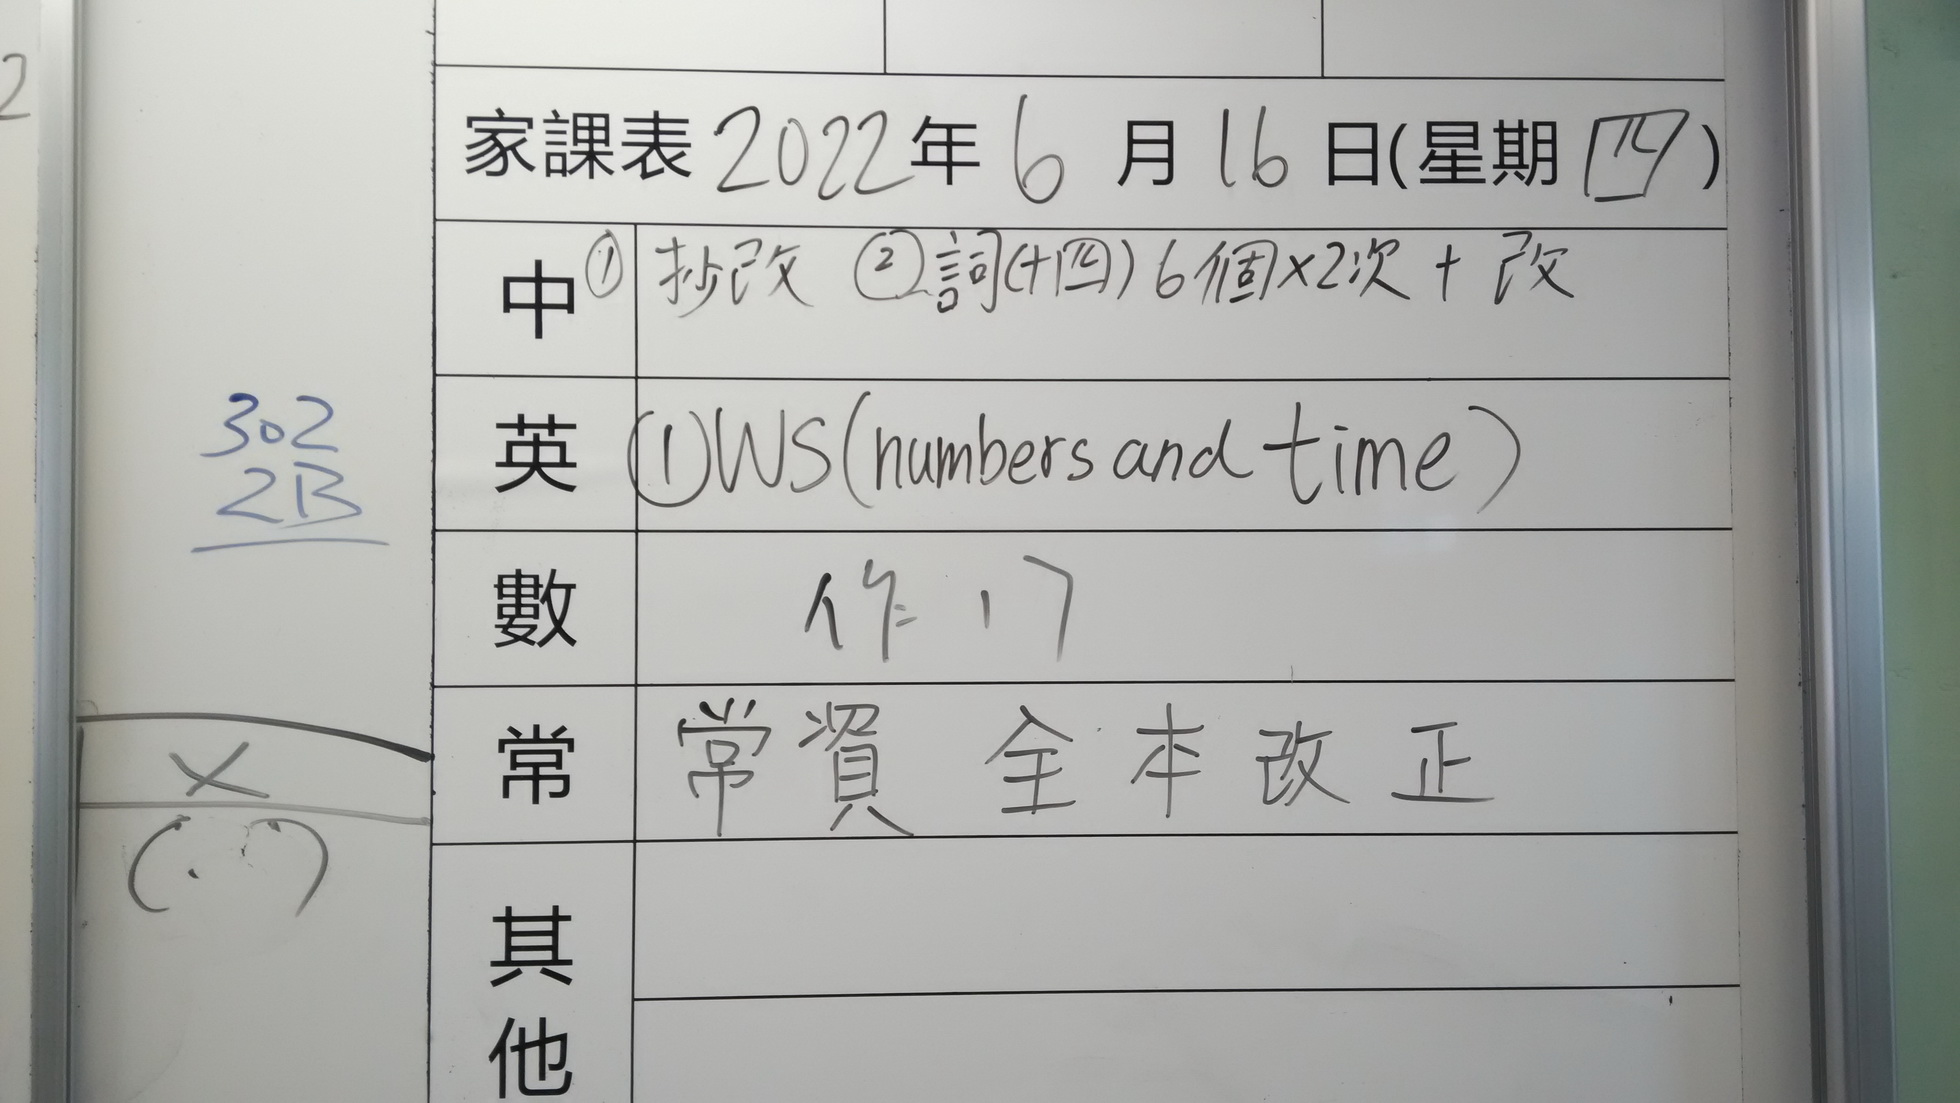 2
家課表 2022年 6 月 16 日(星期四)
中 ① 抄改 ② 詞(十四) 6個×2次 + 改
302
2B
英 ① WS (numbers and time)
數 作 17
常 常資 全本改正
×
其
他